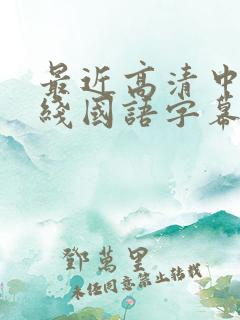 最近高清中
綫國語字幕
鄧萬里
未任同意禁止转载